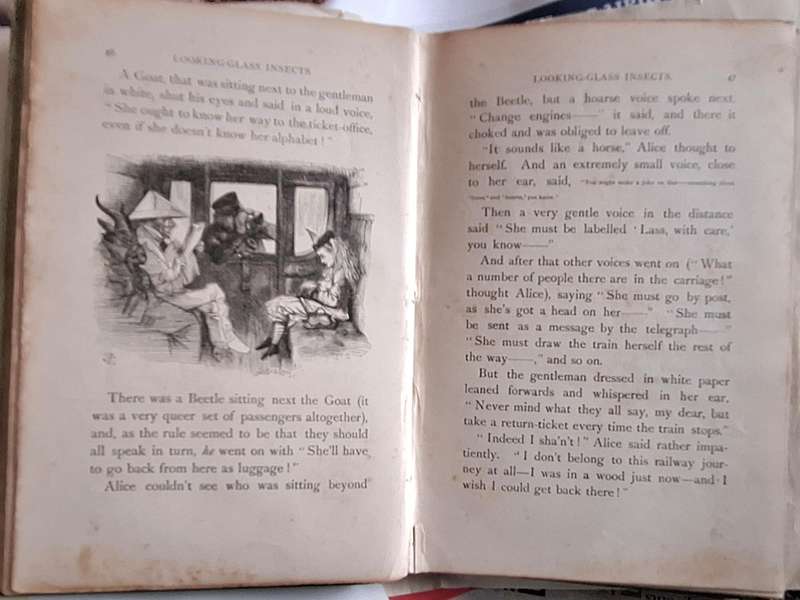 LOOKING-GLASS INSECTS
A Goat, that was sitting next to the gentleman
in white, shut his eyes and said in a loud voice,
"She ought to know her way to the ticket-office,
even if she doesn't know her alphabet!"
There was a Beetle sitting next the Goat (it
was a very queer set of passengers altogether),
and, as the rule seemed to be that they should
all speak in turn, he went on with "She'll have
to go back from here as luggage!"
Alice couldn't see who was sitting beyond
LOOKING-GLASS INSECTS. 47
the Beetle, but a hoarse voice spoke next.
"Change engines——" it said, and there it
choked and was obliged to leave off.
"It sounds like a horse," Alice thought to
herself. And an extremely small voice, close
to her ear, said, "You might make a joke on that—something about
'horse,' and 'hoarse,' you know."
Then a very gentle voice in the distance
said "She must be labelled 'Lass, with care,'
you know——"
And after that other voices went on ("What
a number of people there are in the carriage!"
thought Alice), saying "She must go by post,
as she's got a head on her——" "She must
be sent as a message by the telegraph——"
"She must draw the train herself the rest of
the way——," and so on.
But the gentleman dressed in white paper
leaned forwards and whispered in her ear,
"Never mind what they all say, my dear, but
take a return-ticket every time the train stops."
"Indeed I sha'n't!" Alice said rather impa-
tiently. "I don't belong to this railway jour-
ney at all—I was in a wood just now—and I
wish I could get back there!"